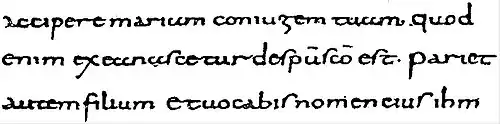 accipere mariam coniugem tuam. quod
enim exeanascetur despūscō est. pariet
autem filium et uocabis nomen eius ihm